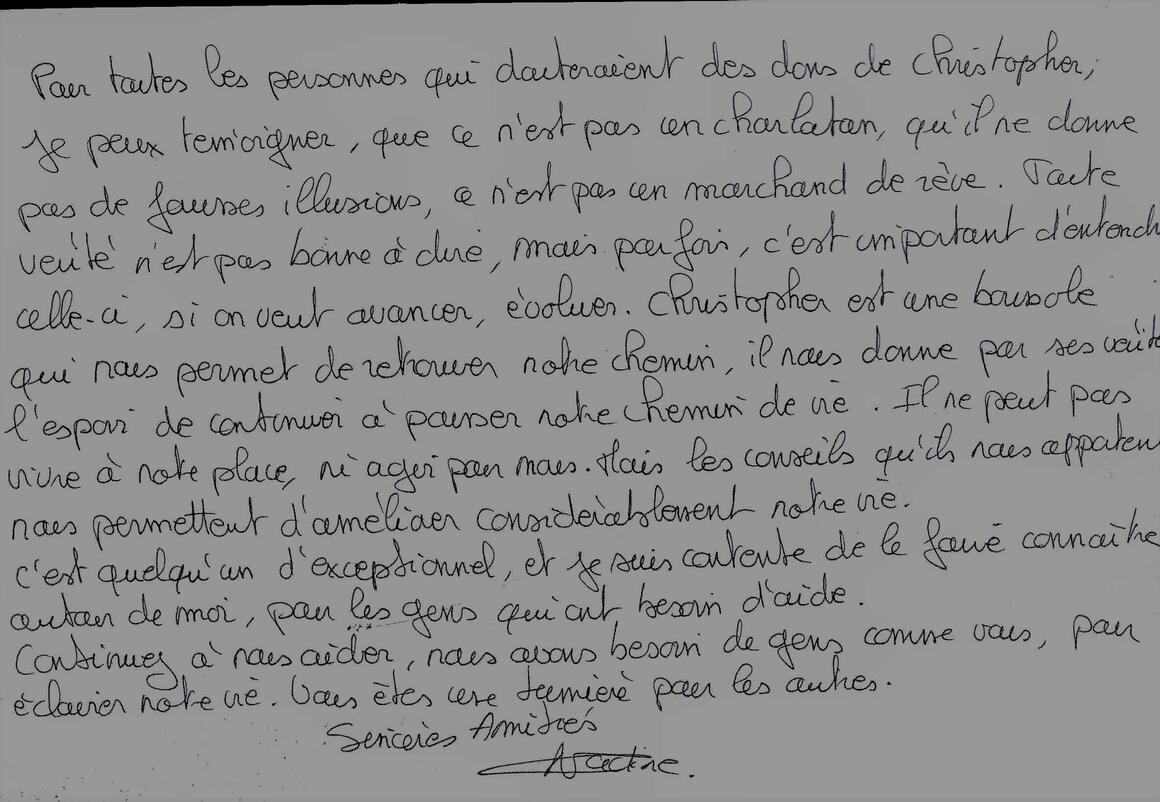 Pour toutes les personnes qui douteraient des dons de Christopher,
je peux témoigner, que ce n'est pas un charlatan, qu'il ne donne
pas de fausses illusions, ce n'est pas un marchand de rève. Toute
vérité n'est pas bonne à dire, mais parfois, c'est important d'entend
celle-ci, si on veut avancer, évoluer. Christopher est une boussole
qui nous permet de retrouver notre chemin, il nous donne par ses vérit
l'espoir de continuer à pousser notre chemin de vie. Il ne peut pas
vivre à notre place, ni agir pour nous. Mais les conseils qu'ils nous apporten
nous permettent d'améliorer considérablement notre vie.
C'est quelqu'un d'exceptionnel, et je suis contente de le faire connaître
autour de moi, pour les gens qui ont besoin d'aide.
Continuez à nous aider, nous avons besoin de gens comme vous, pour
éclairer notre vie. Vous êtes une lumière pour les autres.
Sincères Amitiés
Nadine.